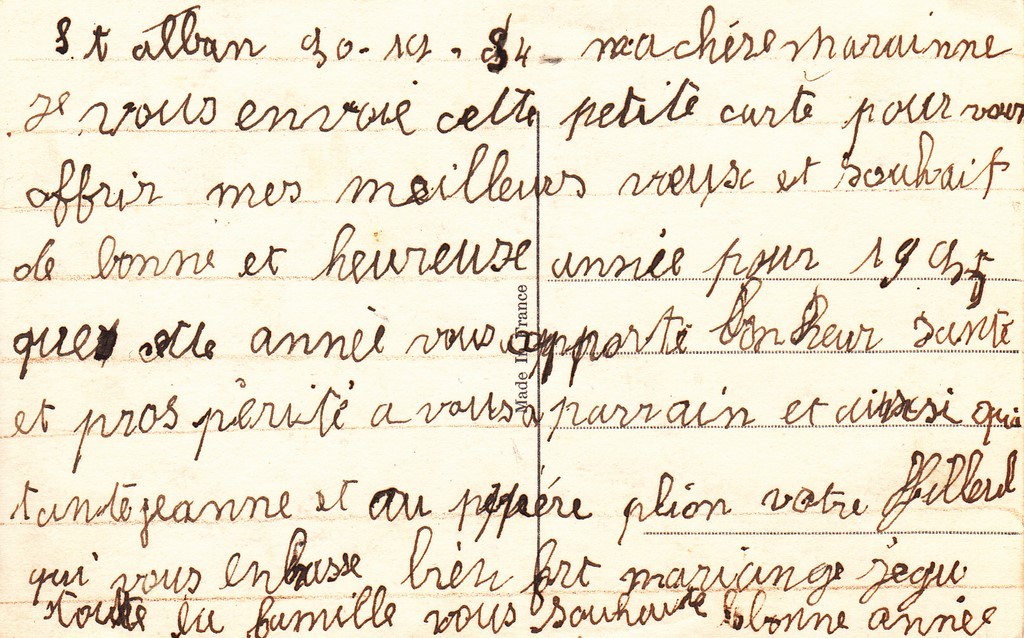 St alban 30-12-34 ma chére marainne
je vous envoie cette petite carte pour vous
offrir mes meilleurs veux et souhait
de bonne et heureuse année pour 1935
que cette année vous apporte bonheur santé
et prospérité a vous a parrain et aussi qu
tante jeanne et au pepére plion votre filleul
qui vous enbrasse bien fort mariange jégu
toute la famille vous souhaite bonne année
Made In France